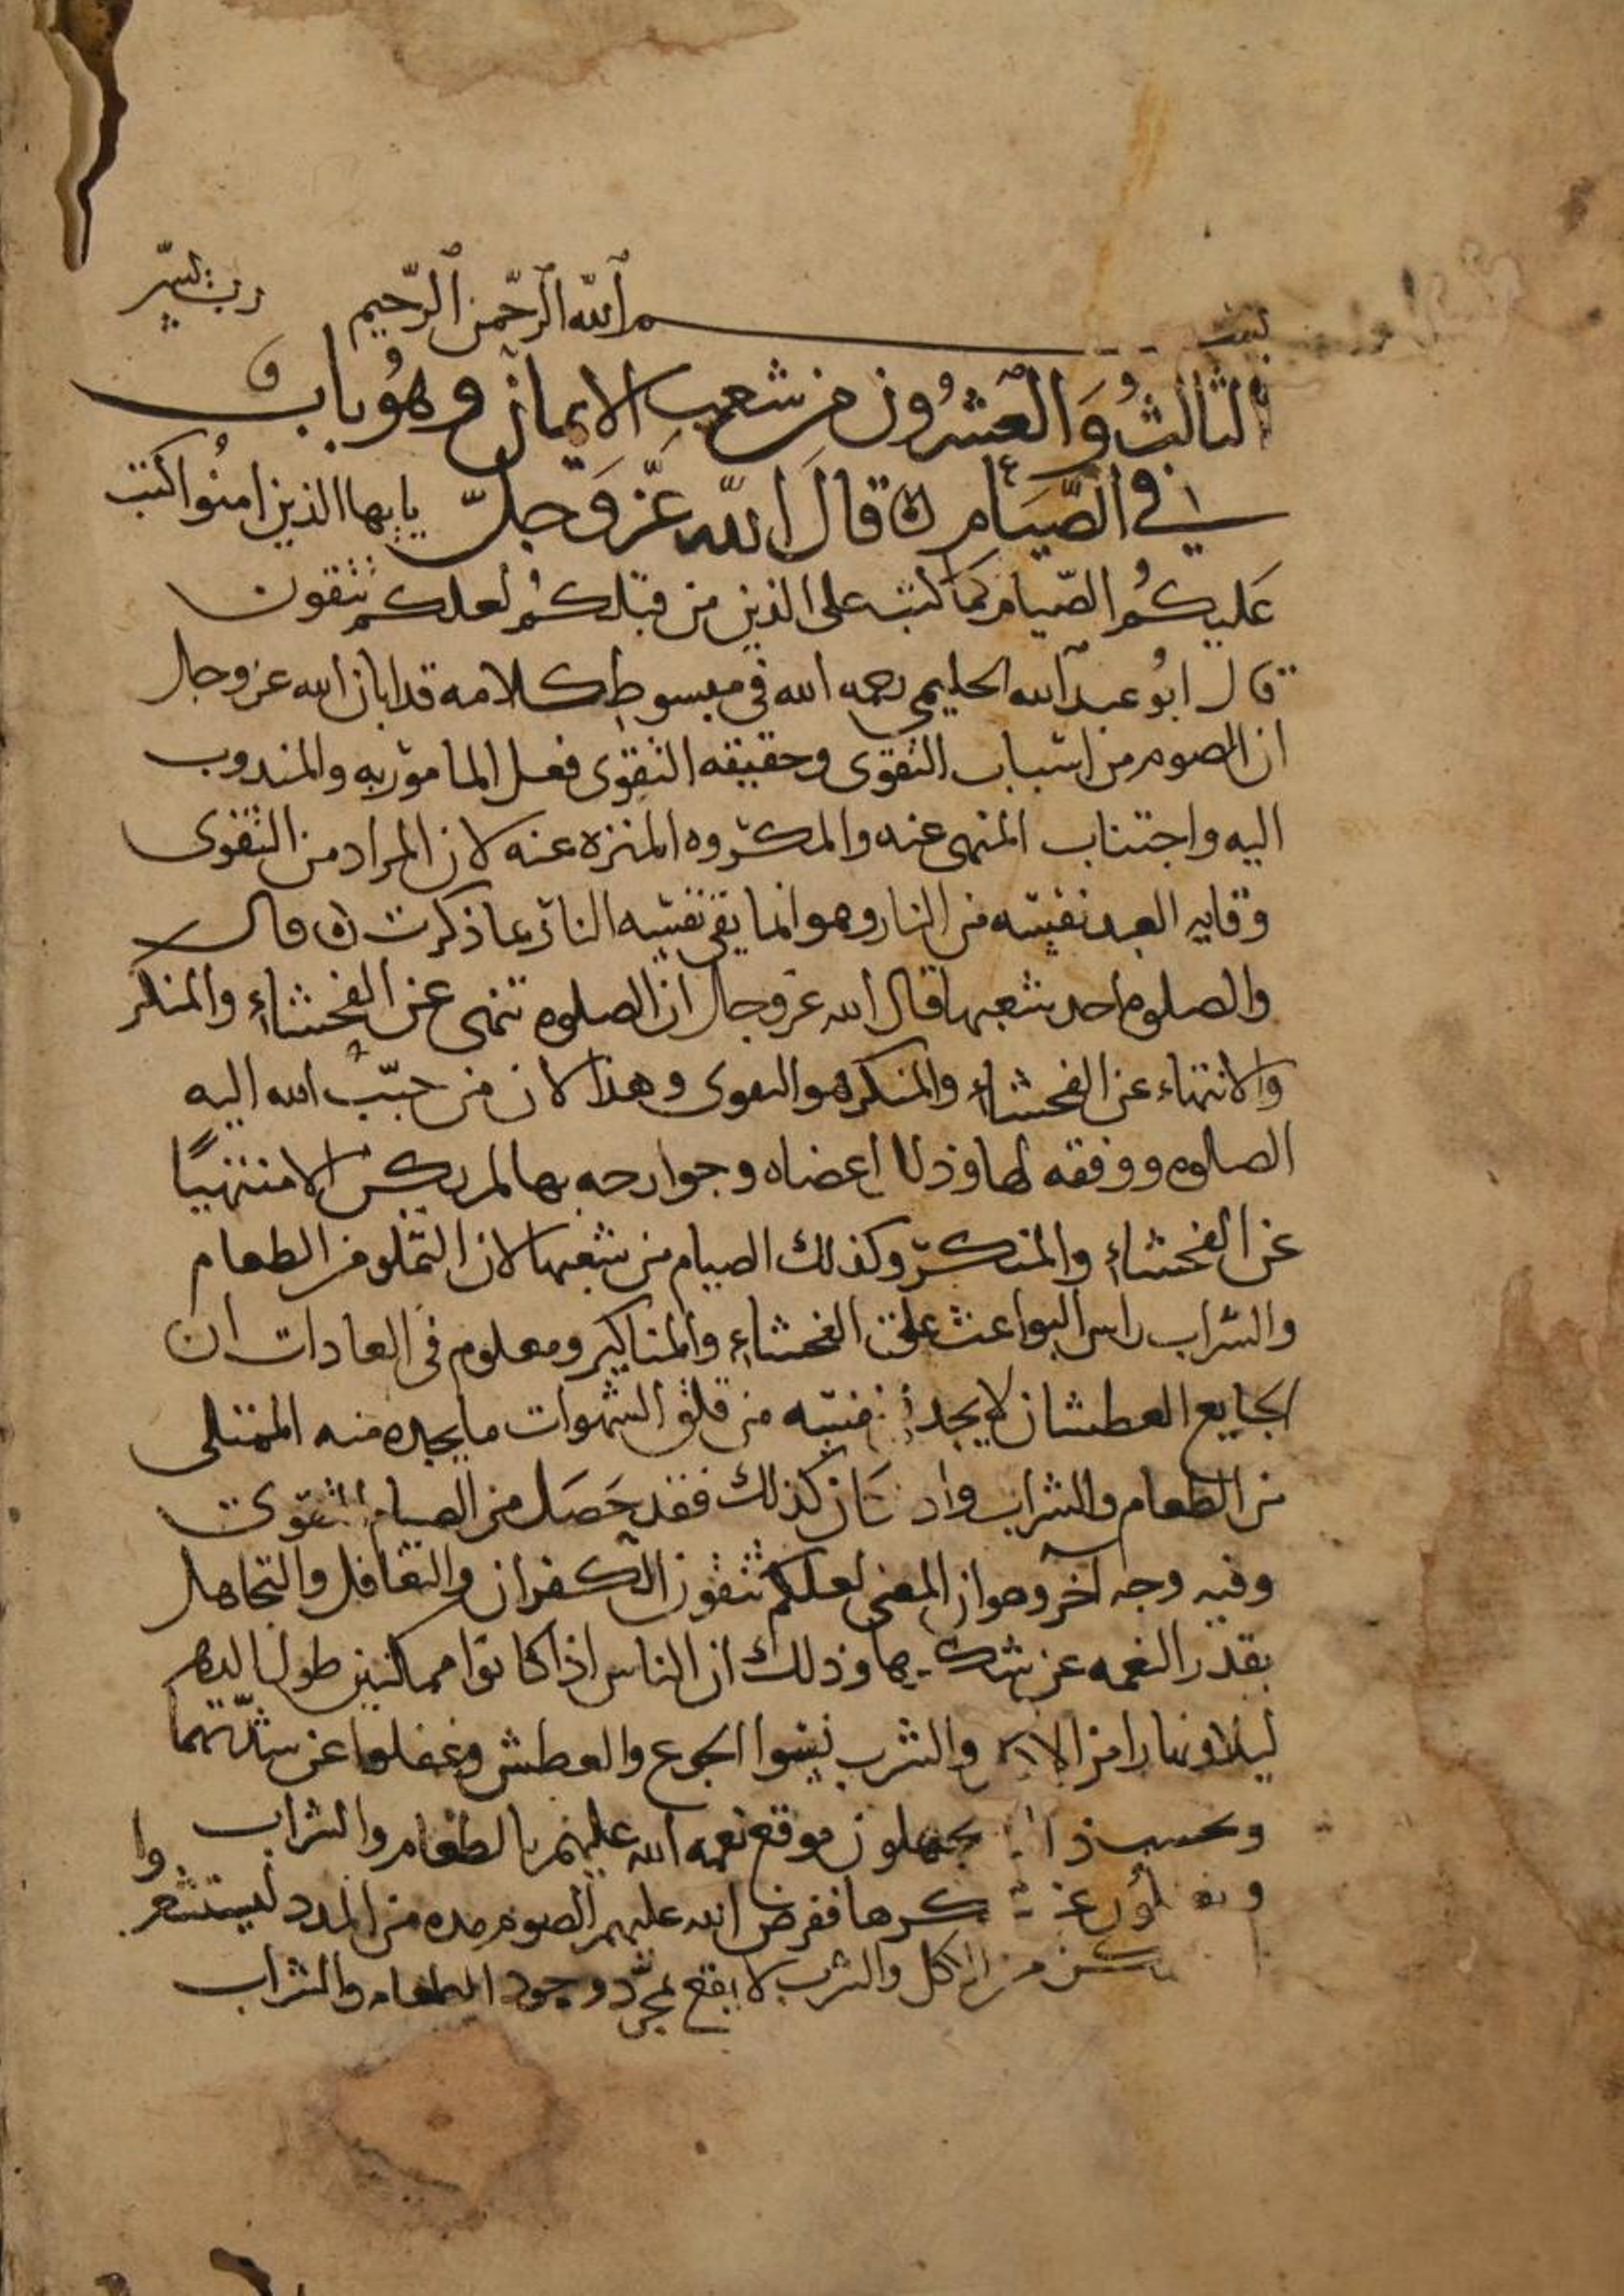 بسم الله الرحمن الرحيم رب يسر
الثالث والعشرون من شعب الايمان وهو باب
في الصيام قال الله عز وجل يايها الذين امنوا كتب
عليكم الصيام كما كتب على الذين من قبلكم لعلكم تتقون
قال ابو عبد الله الحليمي رحمه الله في مبسوط كلامه قد ابان الله عز وجل
ان الصوم من اسباب التقوى وحقيقه التقوى فعل المامور به والمندوب
اليه واجتناب المنهى عنه والمكروه المنزه عنه لان المراد من التقوى
وقايه العبد نفسه من النار وهو انما يقى نفسه النار بما ذكرت قال
والصلوه احد شعبها قال الله عز وجل ان الصلوه تنهى عن الفحشاء والمنكر
والانتهاء عن الفحشاء والمنكر هو التقوى وهذا لان من حبب الله اليه
الصلوه ووفقه لها وذلل اعضاه وجوارحه بها لم يكن الا منتهيًا
عن الفحشاء والمنكر وكذلك الصيام من شعبها لان التملو من الطعام
والشراب راس البواعث على الفحشاء والمناكير ومعلوم في العادات ان
الجايع العطشان لا يجد في نفسه من قلق الشهوات ما يجده منه الممتلى
من الطعام والشراب واذ كان كذلك فقد حصل من الصيام التقوى
وفيه وجه آخر وهو ان المعنى لعلكم تتقون الكفران والتغافل والتجاهل
بقدر النعمه عن شكرها وذلك ان الناس اذا كانوا ممكنين طول الدهر
ليلا ونهارا من الاكل والشرب نسوا الجوع والعطش وغفلوا عن شدتهما
وبحسب ذلك يجهلون موقع نعمه الله عليهم بالطعام والشراب
ويغفلون عن شكرها ففرض الله عليهم الصوم مده من المدد ليستشعروا
من الاكل والشرب لا يقع بمجرد وجود الطعام والشراب